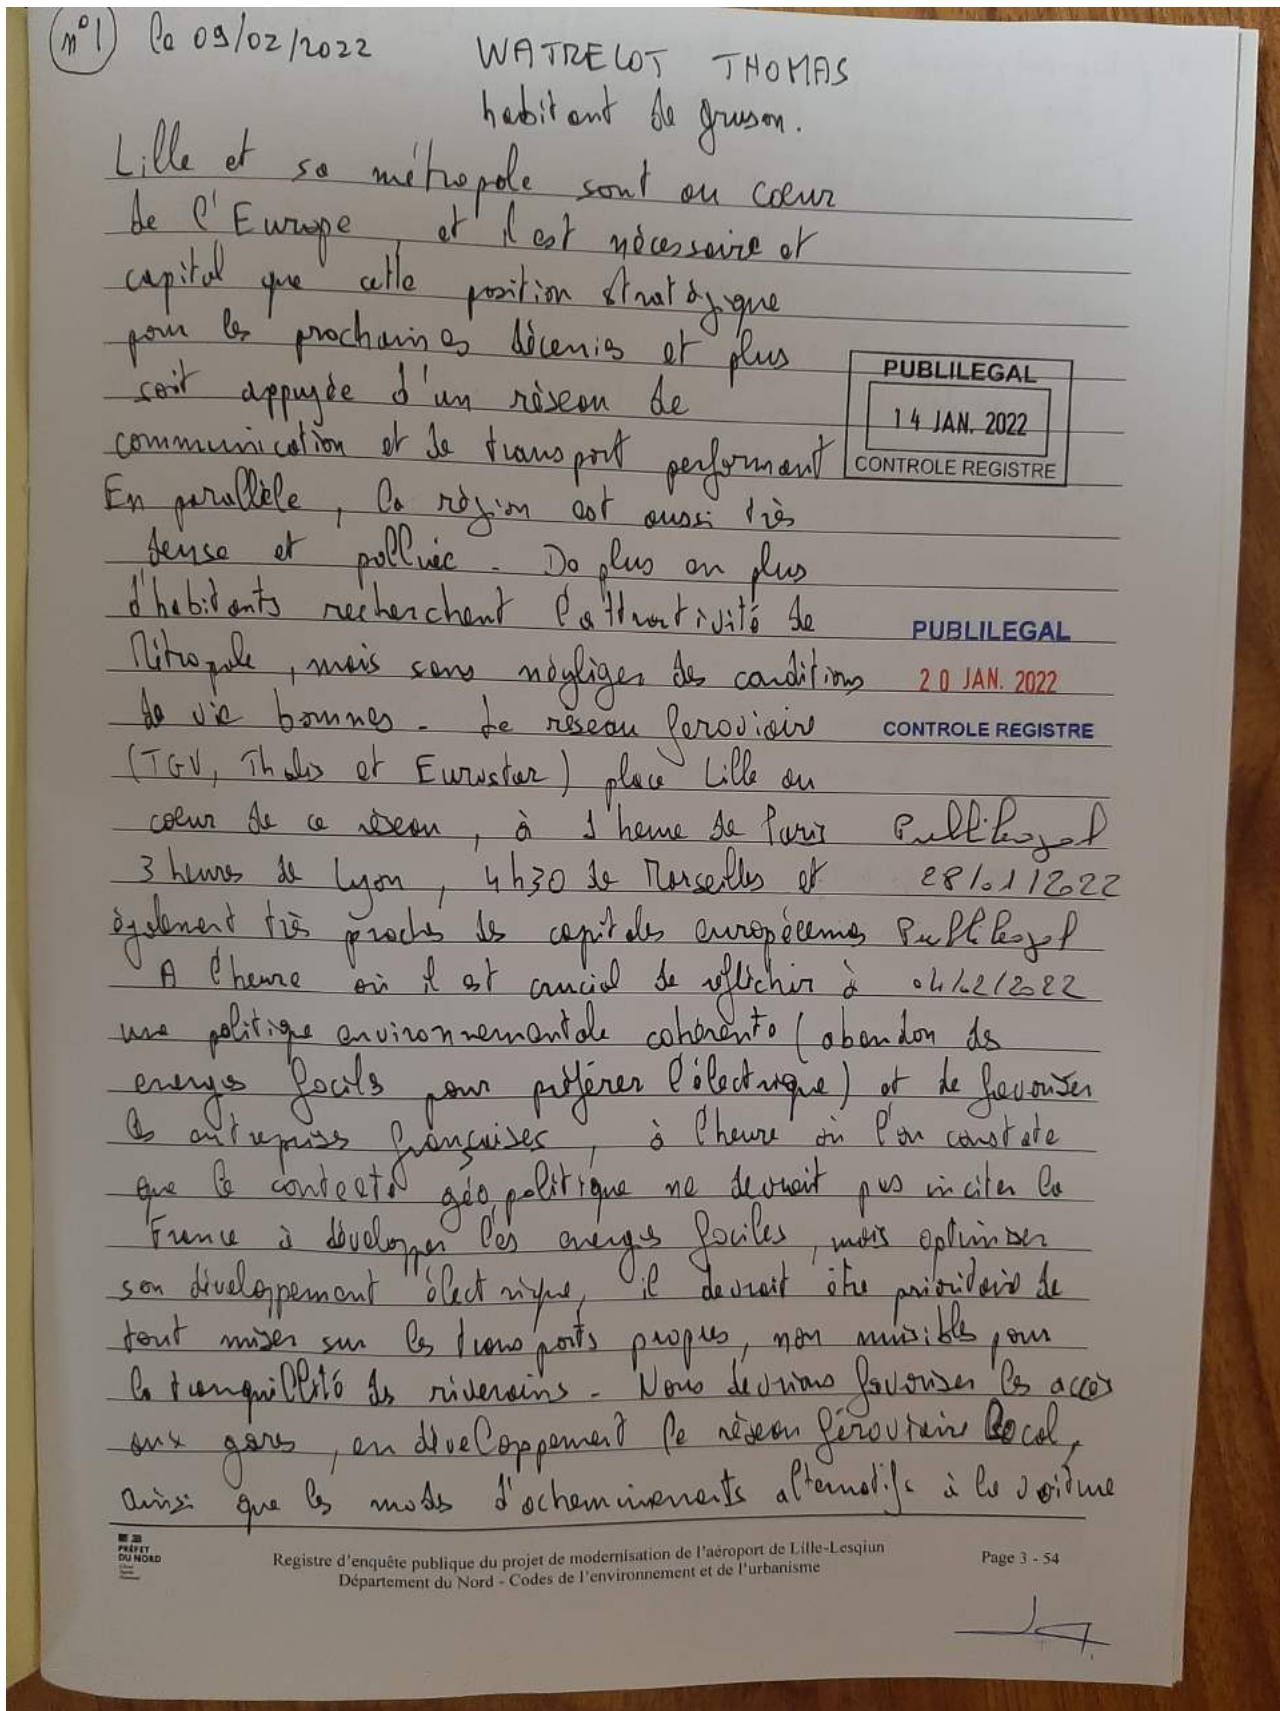 n°1 le 09/02/2022
WATRELOT THOMAS
habitant de gruson.
Lille et sa métropole sont au coeur
de l'Europe, et il est nécessaire et
capital que cette position stratégique
pour les prochaines décenies et plus
soit appuyée d'un réseau de
communication et de transport performant
PUBLILEGAL
14 JAN. 2022
CONTROLE REGISTRE
En parallèle, la région est aussi très
dense et polluée - De plus en plus
d'habitants recherchent l'attractivité de
Métropole, mais sans négliger des conditions
de vie bonnes - Le réseau feroviaire
PUBLILEGAL
20 JAN. 2022
CONTROLE REGISTRE
(TGV, Thalis et Eurostar) place Lille au
coeur de ce réseau, à 1 heure de Paris
3 heures de Lyon, 4h30 de Marseilles et
également très proches des capitales européennes
Publilegal
28/01/2022
Publilegal
04/02/2022
A l'heure où il est crucial de réflichir à
une politique environnementale cohérente (abandon des
energies focils pour préférer l'électrique) et de favoriser
les entreprises françaises, à l'heure où l'on constate
que le contexte géopolitique ne devrait pas inciter la
France à développer les energies fociles, mais optimiser
son développement électrique, il devrait être prioritaire de
tout miser sur les transports propres, non nuisibles pour
la tranquillité des riverains - Nous devrions favoriser les accès
aux gares, en développement le réseau féroviaire local,
ainsi que les modes d'acheminements alternatifs à la voiture
PRÉFET
DU NORD
Registre d'enquête publique du projet de modernisation de l'aéroport de Lille-Lesqiun
Département du Nord - Codes de l'environnement et de l'urbanisme
Page 3 - 54